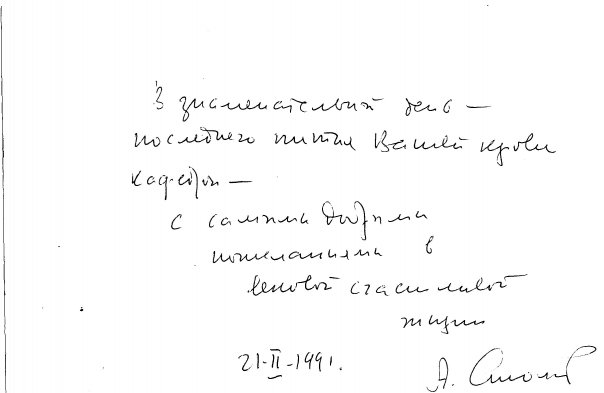 В знаменательный день —
последнего пития Вашей крови
кафедрой —
с самыми добрыми
пожеланиями в
счастливой
жизни
21-II-1991.
А.